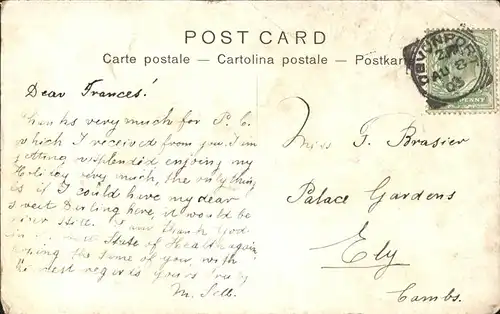 POST CARD
Carte postale — Cartolina postale — Postkart
DEVONPORT
AU
PENNY
Dear Frances!
Thanks very much for P. C.
which I received from you. I am
getting splendid enjoing my
Holiday very much, the only thing
is if I could have my dear
sweet Darling here, it would be
still. I am thank God
in State of Health again
hoping the same of you, with
the best regards yours truly
M.
Miss F. Brasier
Palace Gardens
Ely
Cambs.